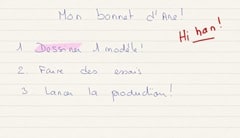 Mon bonnet d'Ane!
Hi han!
1. Dessiner 1 modèle!
2. Faire des essais
3. Lancer la production!